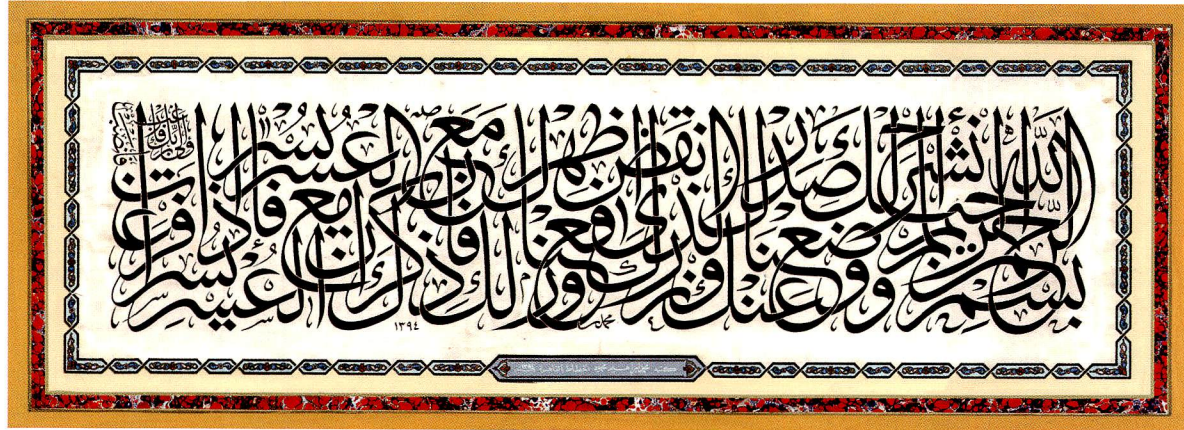 بسم الله الرحمن الرحيم ألم نشرح لك صدرك ووضعنا عنك وزرك الذي أنقض ظهرك ورفعنا لك ذكرك فإن مع العسر يسرا إن مع العسر يسرا فإذا فرغت فانصب وإلى ربك فارغب
محمد
١٣٩٤